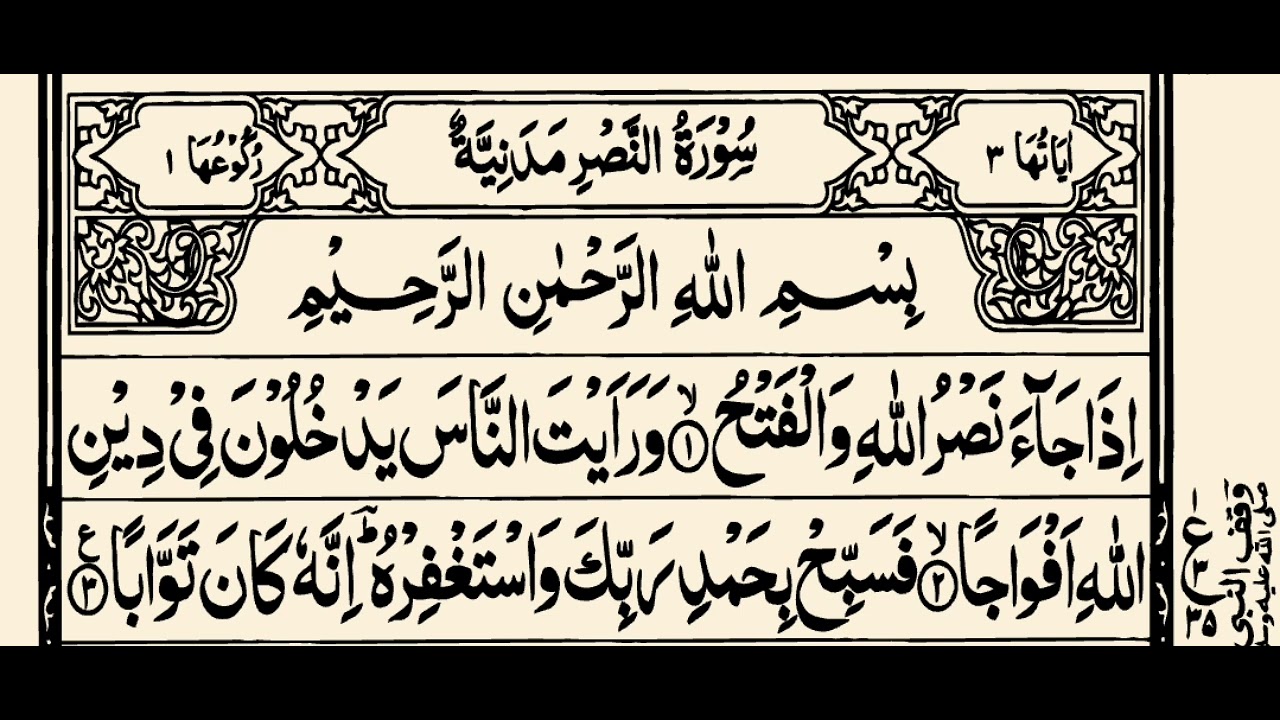 اٰيَاتُهَا ٣ سُوْرَةُ النَّصْرِ مَدَنِيَّةٌ رُكُوْعُهَا ١
بِسْمِ اللّٰهِ الرَّحْمٰنِ الرَّحِيْمِ
اِذَا جَآءَ نَصْرُ اللّٰهِ وَالْفَتْحُ ۙ ١ وَرَاَيْتَ النَّاسَ يَدْخُلُوْنَ فِيْ دِيْنِ
اللّٰهِ اَفْوَاجًا ۙ ٢ فَسَبِّحْ بِحَمْدِ رَبِّكَ وَاسْتَغْفِرْهُ ؕ اِنَّهٗ كَانَ تَوَّابًا ٣ ع
ع
٣
٣٥
وقف النبي
صلى الله عليه وسل